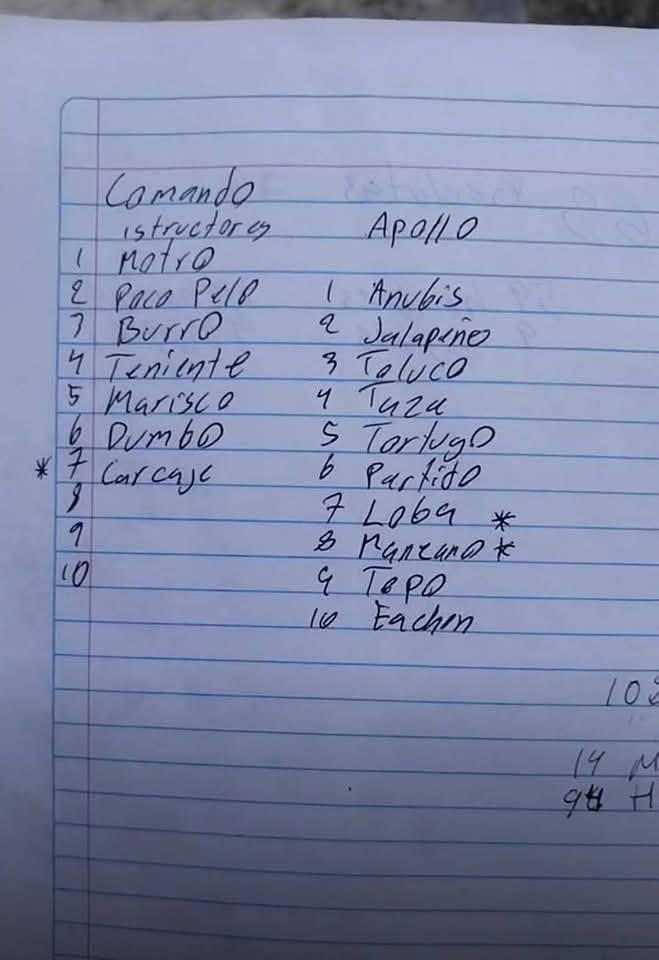 Comando
istructores Apollo
1 Motro
2 Paco Pelo 1 Anubis
3 Burro 2 Jalapeño
4 Teniente 3 Toluco
5 Marisco 4 Taza
6 Dumbo 5 Tortugo
* 7 Carcaje 6 Partido
8 7 Loba *
9 8 Manzano *
10 9 Topo
10 Eachon
108
14 M
94 H